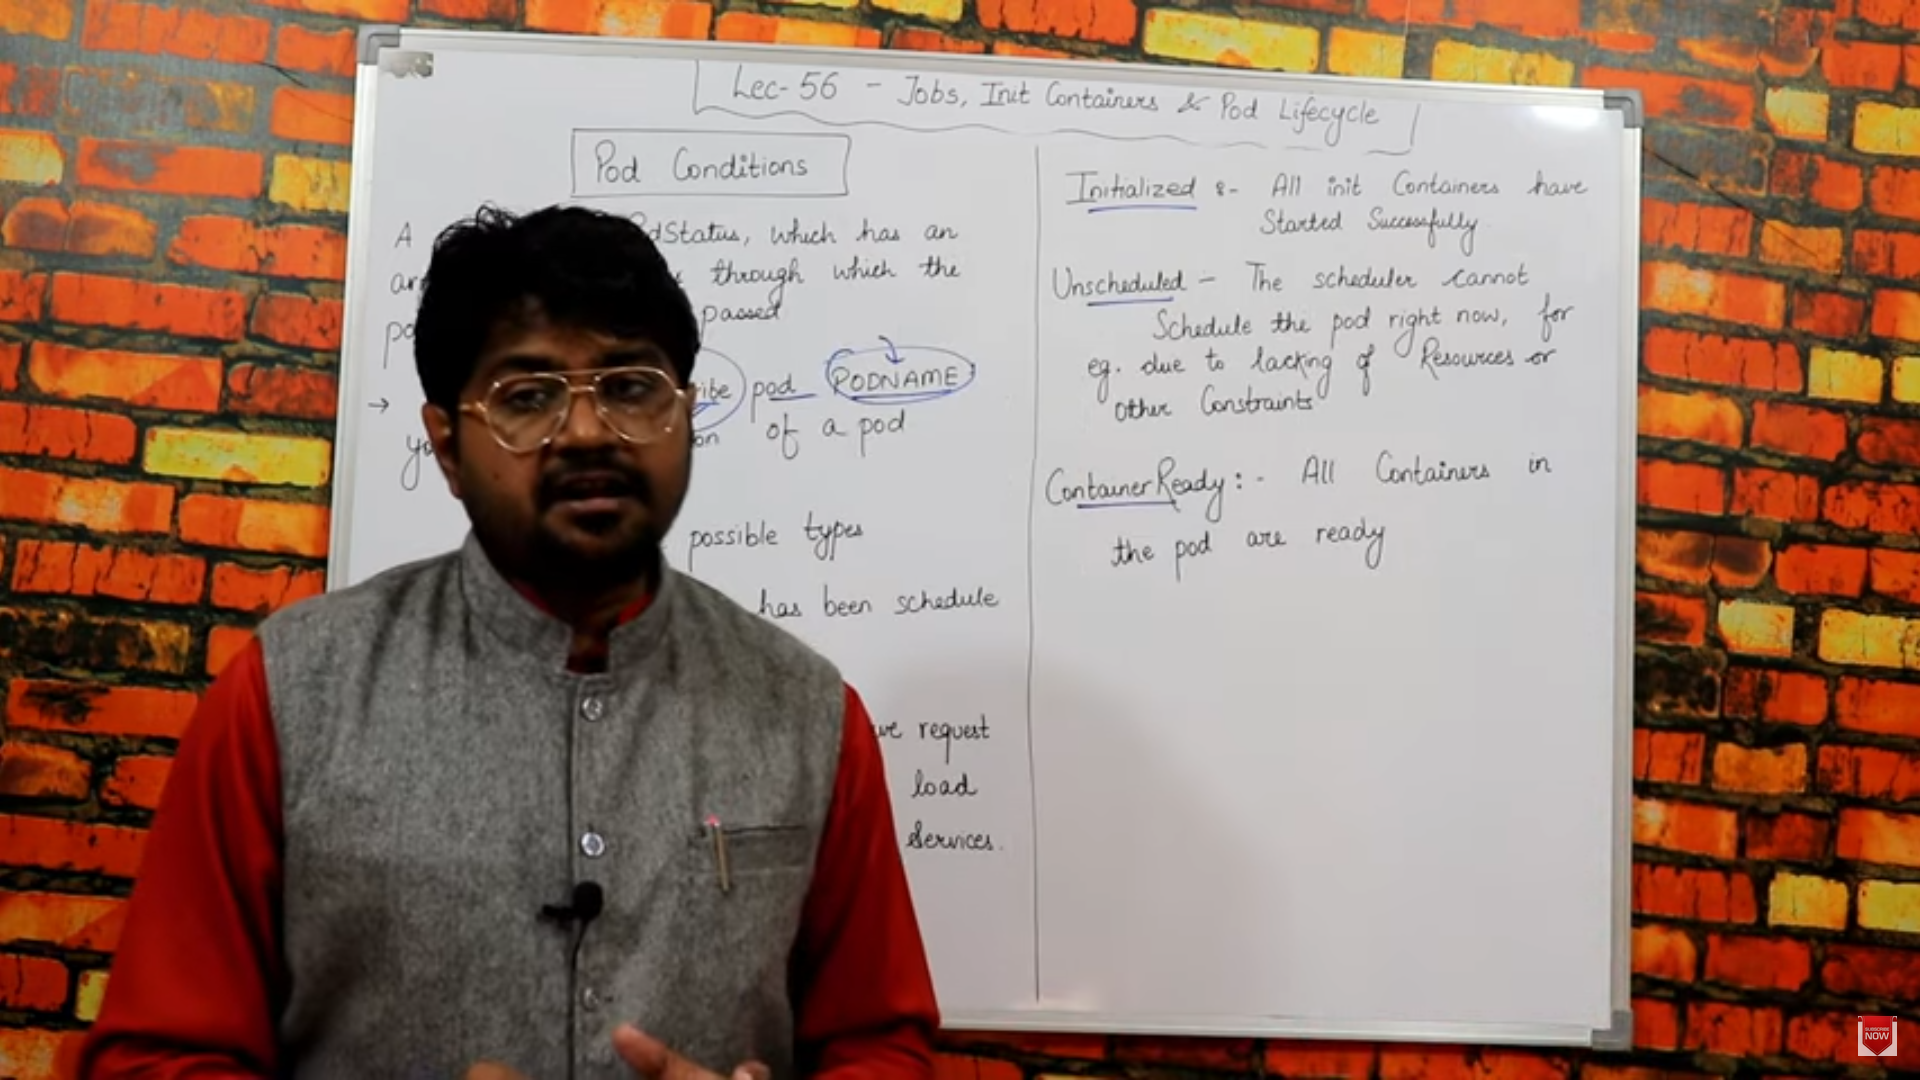 Lec-56 - Jobs, Init Containers & Pod Lifecycle
Pod Conditions
A dStatus, which has an
through which the
passed
→ pod PODNAME
of a pod
possible types
has been schedule
request
load
Services.
Initialized :- All init Containers have
Started Successfully
Unscheduled :- The scheduler cannot
Schedule the pod right now, for
eg. due to lacking of Resources or
Other Constraints
ContainerReady :- All Containers in
the pod are ready
SUBSCRIBE
NOW